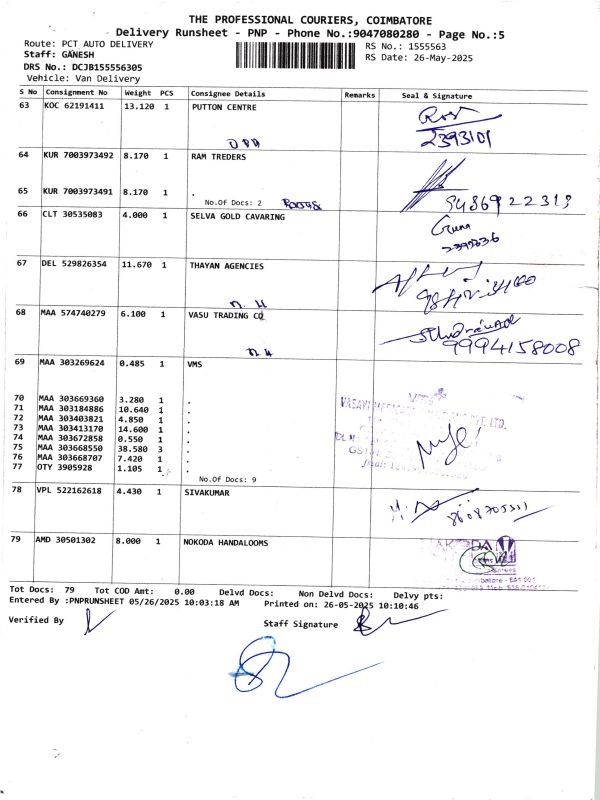 THE PROFESSIONAL COURIERS, COIMBATORE
Delivery Runsheet - PNP - Phone No.:9047080280 - Page No.:5
Route: PCT AUTO DELIVERY RS No.: 1555563
Staff: GANESH RS Date: 26-May-2025
DRS No.: DCJB155556305
Vehicle: Van Delivery
S No Consignment No Weight PCS Consignee Details Remarks Seal & Signature
63 KOC 62191411 13.120 1 PUTTON CENTRE
2393101
64 KUR 7003973492 8.170 1 RAM TREDERS
65 KUR 7003973491 8.170 1 .
No.Of Docs: 2
9486922313
66 CLT 30535083 4.000 1 SELVA GOLD CAVARING
67 DEL 529826354 11.670 1 THAYAN AGENCIES
68 MAA 574740279 6.100 1 VASU TRADING CO
9994158008
69 MAA 303269624 0.485 1 VMS
70 MAA 303669360 3.280 1 .
71 MAA 303184886 10.640 1 .
72 MAA 303403821 4.850 1 .
73 MAA 303413170 14.600 1 .
74 MAA 303672858 0.550 1 .
75 MAA 303668550 38.580 3 .
76 MAA 303668707 7.420 1 .
77 OTY 3905928 1.105 1 .
No.Of Docs: 9
78 VPL 522162618 4.430 1 SIVAKUMAR
79 AMD 30501302 8.000 1 NOKODA HANDALOOMS
Tot Docs: 79 Tot COD Amt: 0.00 Delvd Docs: Non Delvd Docs: Delvy pts:
Entered By :PNPRUNSHEET 05/26/2025 10:03:18 AM Printed on: 26-05-2025 10:10:46
Verified By Staff Signature